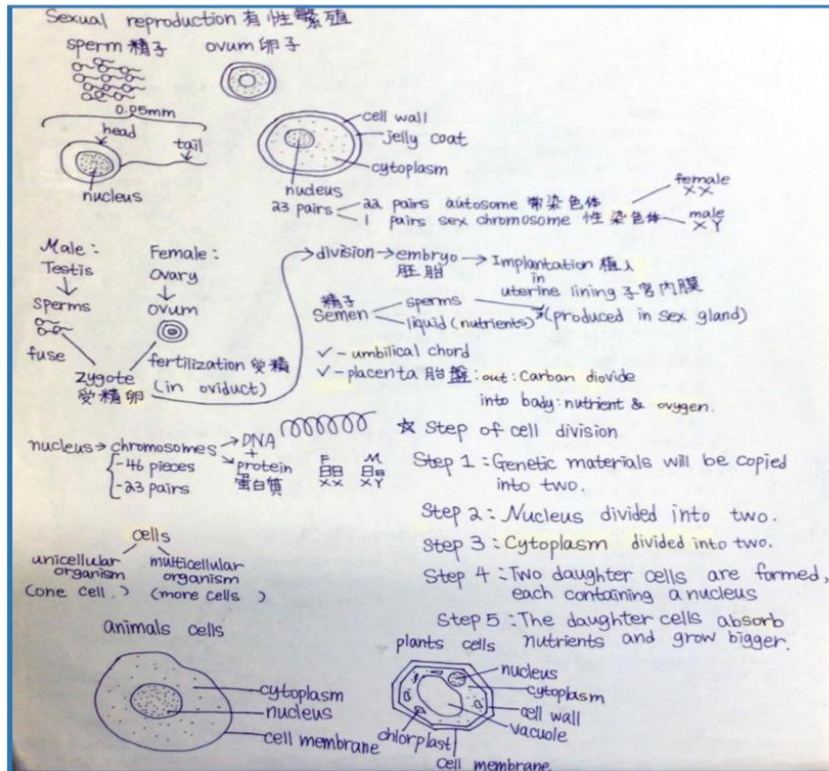 Sexual reproduction 有性繁殖
sperm 精子 ovum 卵子
0.05mm
head
tail
nucleus
cell wall
jelly coat
cytoplasm
nucleus
23 pairs
22 pairs autosome 常染色体
1 pairs sex chromosome 性染色体
female
XX
male
XY
Male:
Testis
sperms
fuse
Female:
ovary
ovum
zygote
受精卵
fertilization 受精
(in oviduct)
division
embryo
胚胎
Implantation 植入
in
uterine lining 子宫内膜
精子
Semen
sperms
liquid (nutrients)
(produced in sex gland)
✓ - umbilical chord
✓ - placenta 胎盤: out: Carban diovide
into body: nutrient & ovygen.
nucleus → chromosomes
-46 pieces
-23 pairs
DNA
+
protein
蛋白質
F
XX
M
XY
☆ Step of cell division
Step 1: Genetic materials will be copied
into two.
Step 2: Nucleus divided into two.
Step 3: Cytoplasm divided into two.
Step 4: Two daughter cells are formed,
each containing a nucleus
Step 5: The daughter cells absorb
nutrients and grow bigger.
cells
unicellular
organism
(one cell.)
multicellular
organism
(more cells )
animals cells
cytoplasm
nucleus
cell membrane
plants cells
nucleus
cytoplasm
cell wall
vacuole
chlorplast
cell membrane.